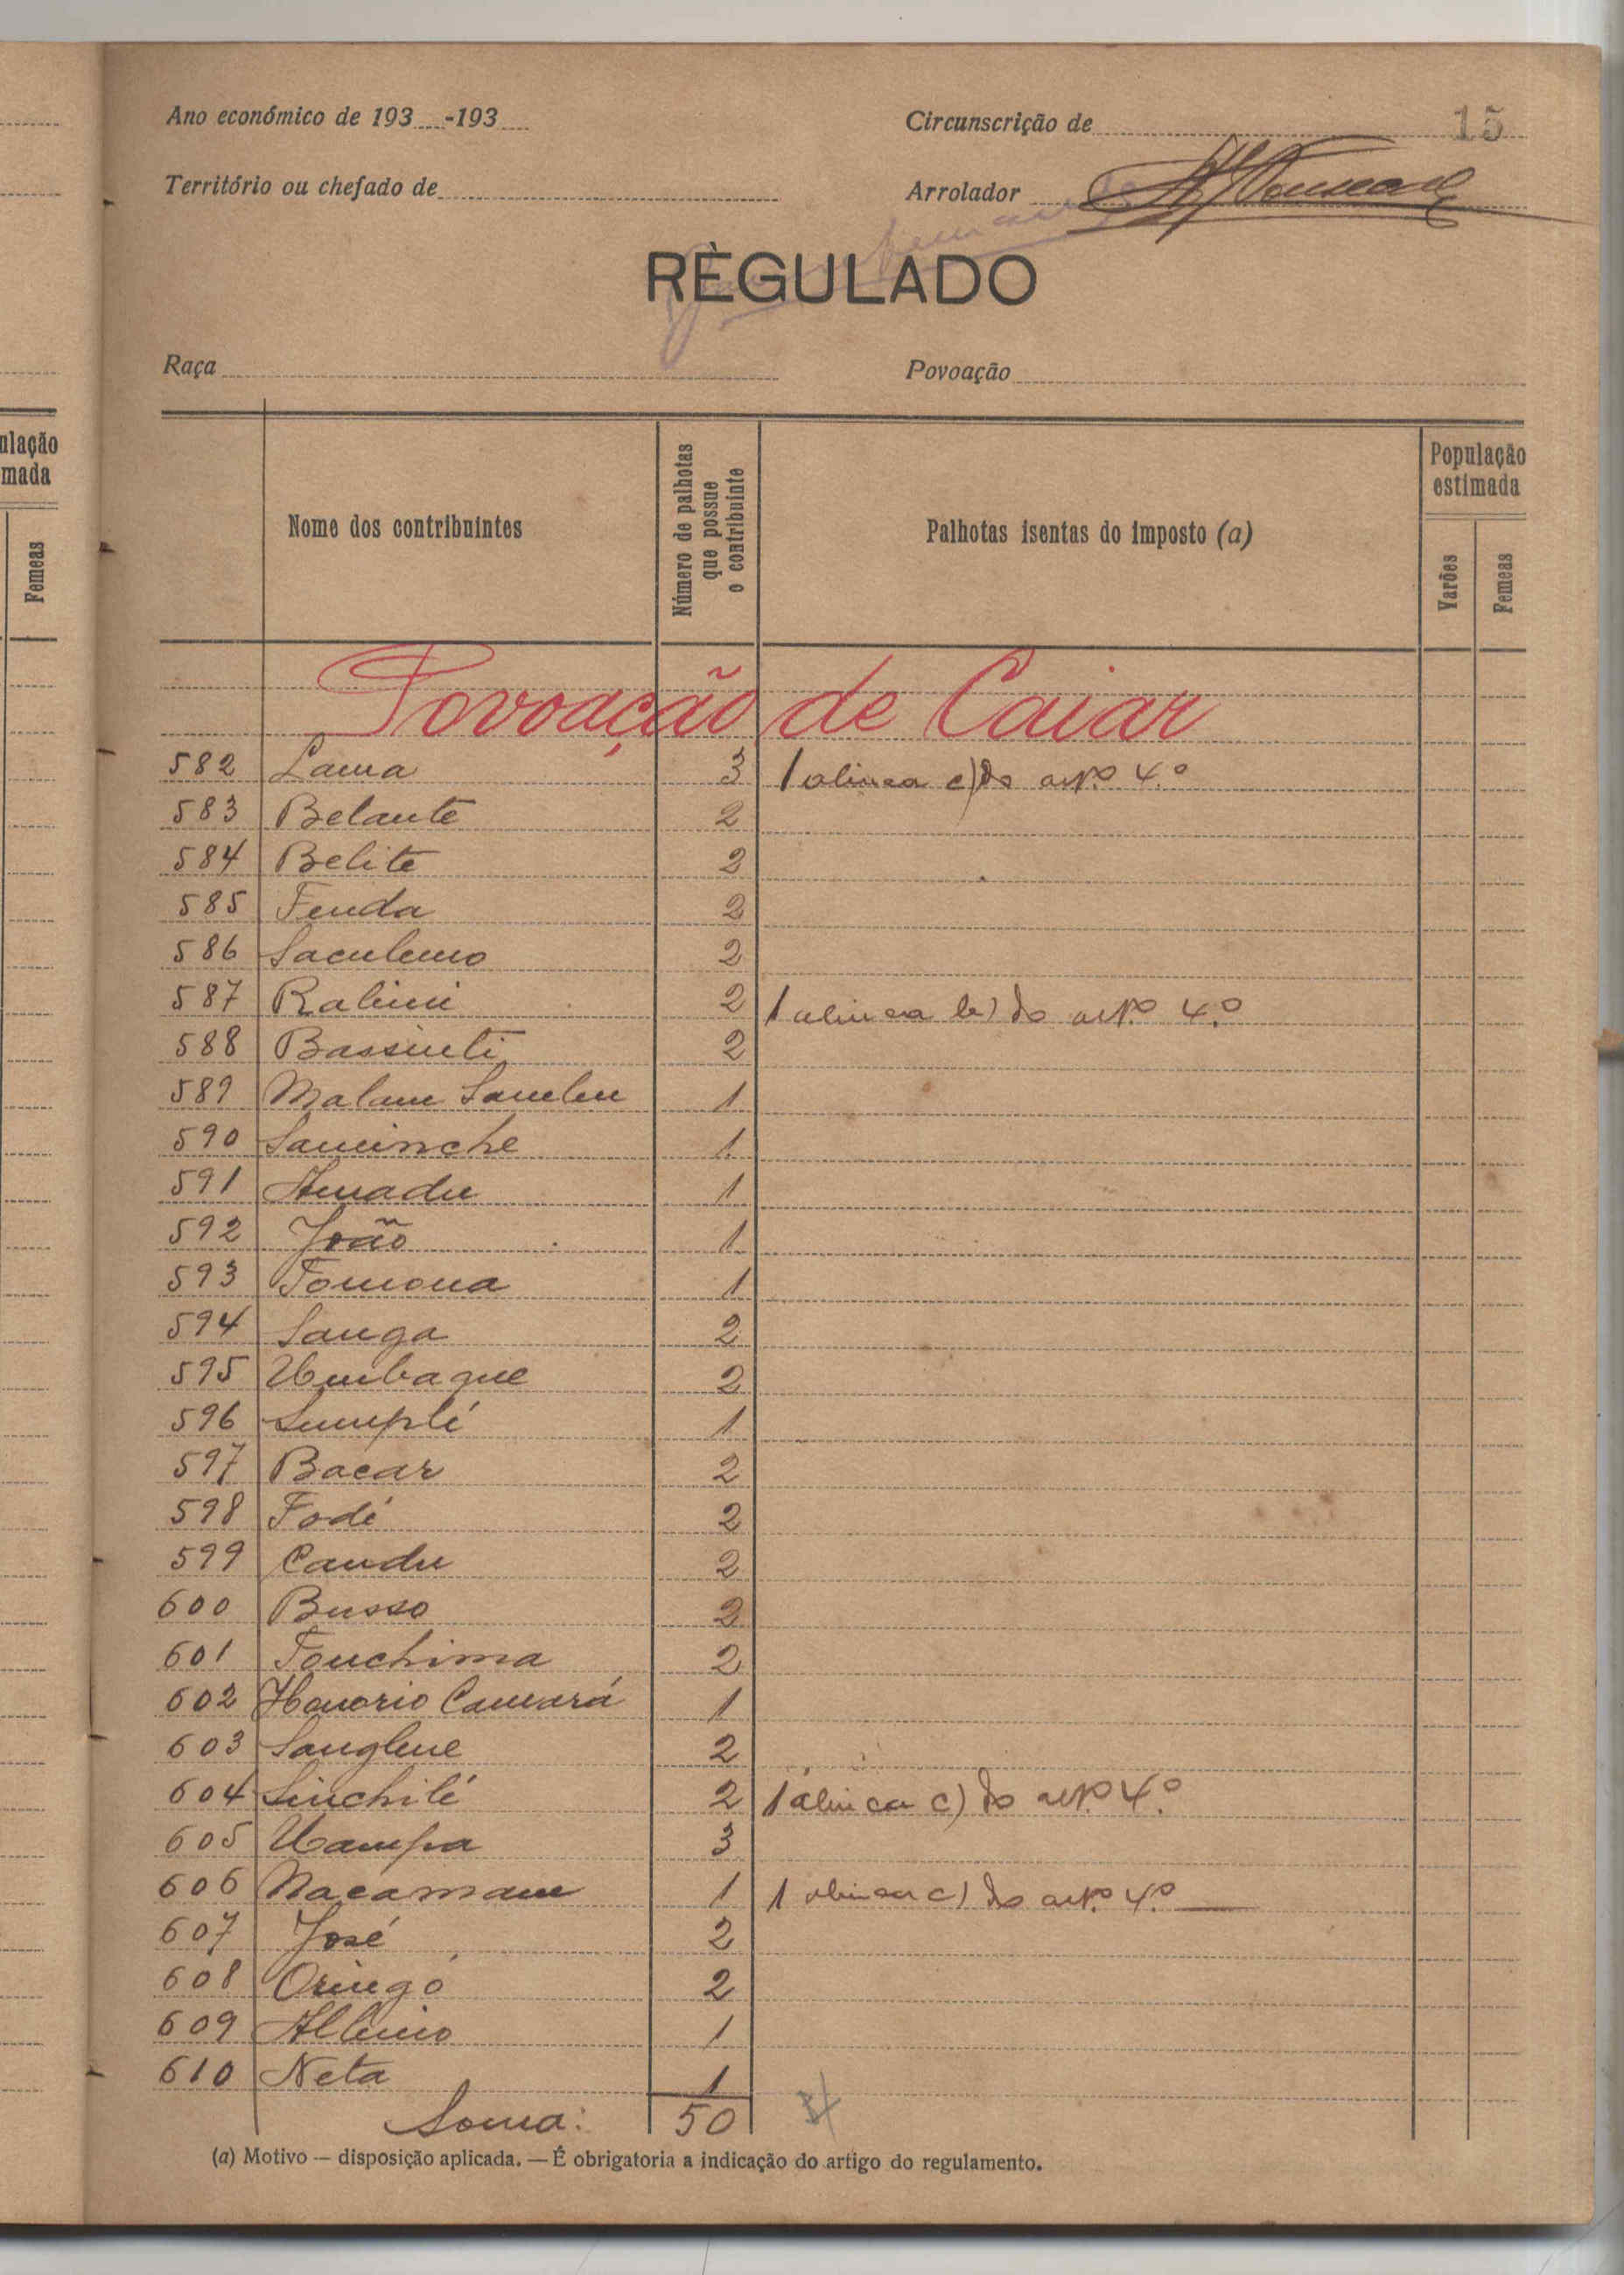 Ano económico de 193 -193
Circunscrição de 15
Território ou chefado de
Arrolador
RÈGULADO
Raça
Povoação
Nome dos contribuintes
Número de palhotas que possue o contribuinte
Palhotas isentas do imposto (a)
População estimada
Varões
Femeas
ulação
mada
Femeas
Povoação de Caiar
582 Lama 3 1 alinea c) do artº. 4.º
583 Belante 2
584 Belite 2
585 Fenda 2
586 Saculemo 2
587 Ralimi 2 1 alinea b) do artº. 4.º
588 Bassinti 2
589 Malam Sambu 1
590 Saminche 1
591 Amadu 1
592 João 1
593 Tomona 1
594 Sanga 2
595 Umbaque 2
596 Sumplé 1
597 Bacar 2
598 Fodé 2
599 Candu 2
600 Busso 2
601 Tonchima 2
602 Honorio Camará 1
603 Sanglene 2
604 Sinchilé 2 1 alinea c) do artº. 4.º
605 Uampa 3
606 Nacamam 1 1 alinea c) do artº. 4.º
607 José 2
608 Oringó 2
609 Albino 1
610 Neta 1
Soma: 50
(a) Motivo — disposição aplicada. — É obrigatoria a indicação do artigo do regulamento.